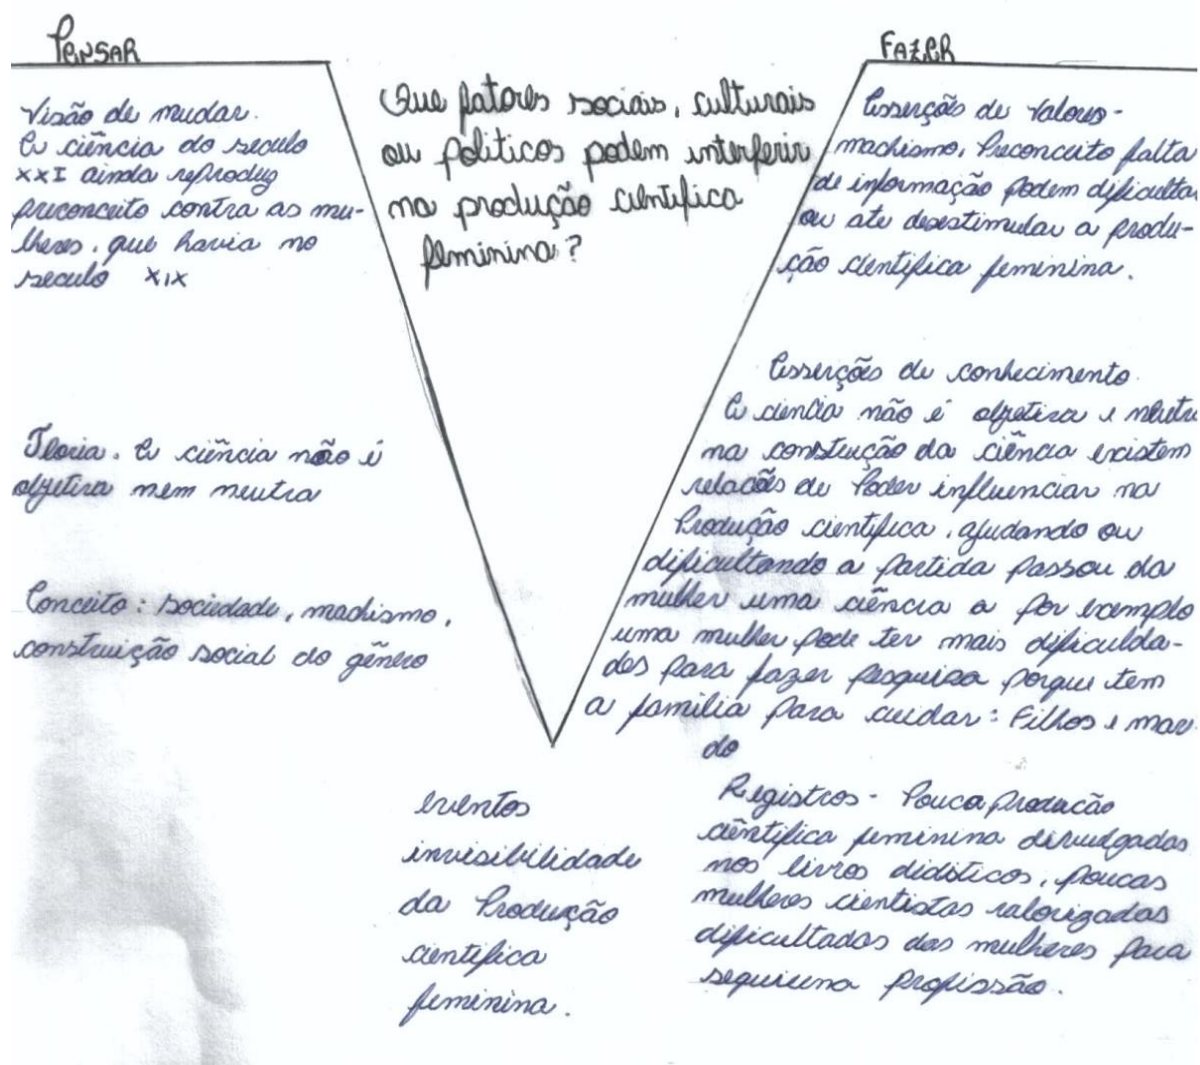 PENSAR
Visão de mudar.
A ciência do seculo
XXI ainda reproduz
preconceito contra as mu-
lheres, que havia no
seculo XIX
Teoria. A ciência não é
objetiva nem neutra
Conceito: sociedade, machismo,
construição social do gênero
Que fatores sociais, culturais
ou políticos podem interferir
na produção científica
feminina?
eventos
invisibilidade
da Produção
cientifica
feminina.
FAZER
Asserções de Valores-
machismo, Preconceito falta
de informação podem dificultar
ou ate desestimular a produ-
ção cientifica feminina.
Asserções de conhecimento
A ciencia não é objetiva e neutra
na construção da ciência existem
relacões de Poder influenciar na
Produção cientifica, ajudando ou
dificultando a partida passou da
mulher uma ciência a por exemplo
uma mulher pode ter mais dificulda-
des para fazer pesquisa porque tem
a familia para cuidar: Filhos e mar
do
Registros - Pouca producão
ciêntifica feminina divulgadas
nos livros didáticos, poucas
mulheres cientistas valorizadas
dificultados das mulheres para
profissão.